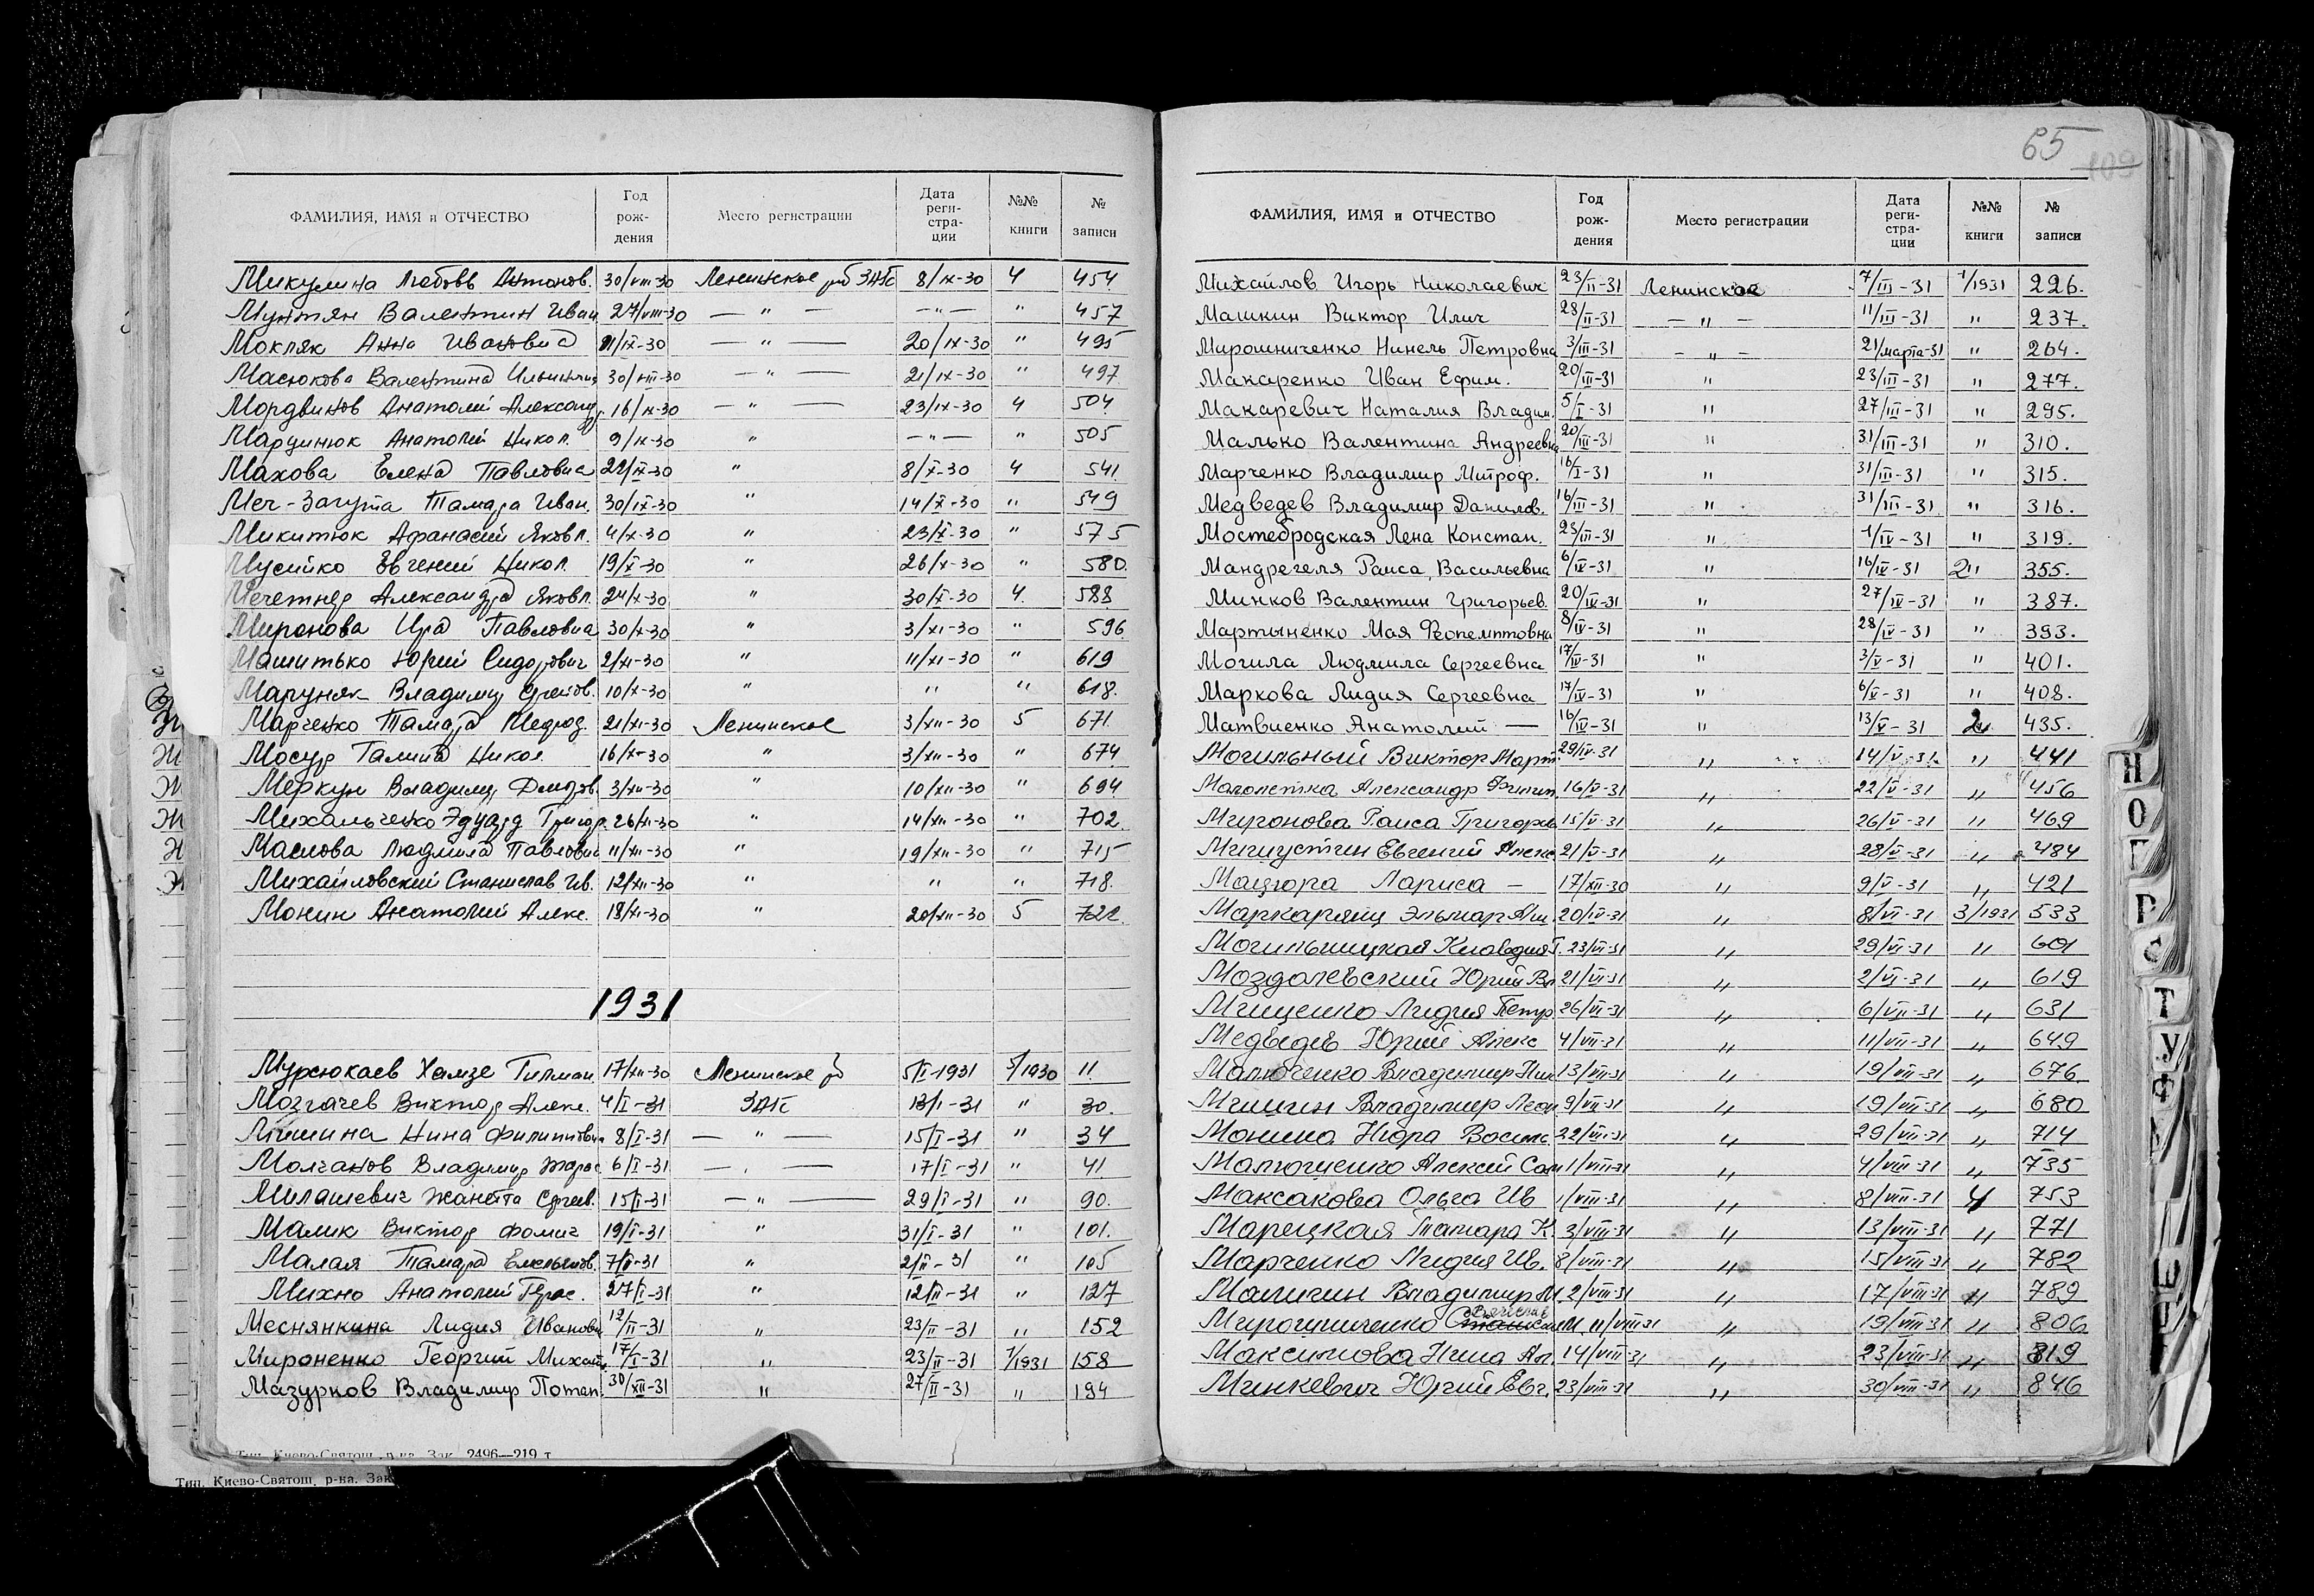 65
109
ФАМИЛИЯ, ИМЯ и ОТЧЕСТВО Год рож-дения Место регистрации Дата реги-стра-ции №№ книги № записи
Микулина Любовь Антонов. 30/VIII-30 Ленинское рб ЗАГС 8/IX-30 4 454
Мунтян Валентин Иван 27/VIII-30 — " — — " — " 457
Мокляк Анна Ивановна 11/IX-30 — " — 20/IX-30 " 495
Масюкова Валентина Ильинична 30/VIII-30 — " — 21/IX-30 " 497
Мордвинов Анатолий Александр. 16/IX-30 — " — 23/IX-30 4 504
Марцинюк Анатолий Никол. 9/IX-30 " — " — " 505
Махова Елена Павловна 22/IX-30 " 8/X-30 4 541
Меч-Загута Тамара Иван. 30/IX-30 " 14/X-30 " 549
Микитюк Афанасий Яковл. 4/X-30 " 23/X-30 " 575
Мусийко Евгений Никол. 19/X-30 " 26/X-30 " 580
Мечетнер Александра Яковл. 24/X-30 " 30/X-30 4 588
Миронова Ира Павловна 30/X-30 " 3/XI-30 " 596
Машитько Юрий Сидорович 2/XI-30 " 11/XI-30 " 619
Маруняк Владимир 10/X-30 " " " 618.
Марченко Тамара 21/XI-30 Ленинское 3/XII-30 5 671
Мосур Галина Никол. 16/X-30 " 3/XII-30 " 674
Меркун Владимир Федоров. 3/XII-30 " 10/XII-30 " 694
Михальченко Эдуард Григор. 26/XI-30 " 14/XII-30 " 702
Маслова Людмила Павловна 11/XII-30 " 19/XII-30 " 715
Михайловский Станислав Ив. 12/XII-30 " " " 718.
Монин Анатолий Алекс. 18/XI-30 " 20/XII-30 5 722
1931
Мурсюкаев Хамзе Гилман 17/XII-30 Ленинское рб 5/I-1931 5/1930 11.
Мозгачев Виктор Алекс. 4/I-31 ЗАГС 13/I-31 " 30.
Мишина Нина Филипповна 8/I-31 — " — 15/I-31 " 34
Молчанов Владимир 6/I-31 — " — 17/I-31 " 41
Милашевич Жанетта Сергеев. 15/I-31 — " — 29/I-31 " 90.
Малик Виктор Фомич 19/I-31 " 31/I-31 " 101.
Малая Тамара Емельянов. 7/II-31 " 2/II-31 " 105
Михно Анатолий Герас. 27/I-31 " 12/II-31 " 127
Меснянкина Лидия Ивановн 12/II-31 " 23/II-31 " 152
Мироненко Георгий Михайл. 17/I-31 " 23/II-31 1/1931 158
Мазурков Владимир Потап. 30/XII-31 " 27/II-31 " 194
Тип. Киево-Святош. р-ка. Зак. 2496—219 т.
Тип. Киево-Святош. р-ка. Зак
ФАМИЛИЯ, ИМЯ и ОТЧЕСТВО Год рож-дения Место регистрации Дата реги-стра-ции №№ книги № записи
Михайлов Игорь Николаевич 23/II-31 Ленинское 7/III-31 1/1931 226.
Машкин Виктор Илич 28/II-31 — " — 11/III-31 " 237.
Мирошниченко Нинель Петровна 3/III-31 — " — 21/марта-31 " 264.
Макаренко Иван Ефим. 20/III-31 " 23/III-31 " 277.
Макаревич Наталия Владим. 5/I-31 " 27/III-31 " 295.
Малько Валентина Андреевна 20/III-31 " 31/III-31 " 310.
Марченко Владимир Митроф. 16/I-31 " 31/III-31 " 315.
Медведев Владимир Данилов. 16/III-31 " 31/III-31 " 316.
Мостебродская Лена Констан. 23/III-31 " 1/IV-31 " 319.
Мандрегеля Раиса Васильевна 6/IV-31 " 16/IV-31 2 " 355.
Минков Валентин Григорьев. 20/IV-31 " 27/IV-31 " 387.
Мартыненко Мая Феопемптовна 8/IV-31 " 28/IV-31 " 393.
Могила Людмила Сергеевна 17/IV-31 " 3/V-31 " 401.
Маркова Лидия Сергеевна 17/IV-31 " 6/V-31 " 408.
Матвиенко Анатолий — 16/IV-31 " 13/V-31 2 435.
Могильный Виктор Март. 29/IV-31 " 14/V-31 " 441
Александр Филип. 16/V-31 " 22/V-31 " 456
Миронова Раиса Григорьев 15/V-31 " 26/V-31 " 469
Мишустин Евгений Алекс 21/V-31 " 28/V-31 " 484
Мацюра Лариса — 17/XII-30 " 9/V-31 " 421
Маркарянц Эльмар 20/IV-31 " 8/VI-31 3/1931 533
Могильницкая Клавдия Г. 23/VI-31 " 29/VI-31 " 601
Моздалевский Юрий Вл 21/VI-31 " 2/VI-31 " 619
Мищенко Лидия Петр 26/VI-31 " 6/VII-31 " 631
Медведев Юрий Алекс 4/VII-31 " 11/VII-31 " 649
Малюченко Владимир Ник 13/VII-31 " 19/VII-31 " 676
Мишин Владимир Леон 9/VII-31 " 19/VII-31 " 680
Монина Нора Васил. 22/VII-31 " 29/VII-31 " 714
Малющенко Алексей Сам 1/VIII-31 " 4/VIII-31 " 735
Максакова Ольга Ив 1/VIII-31 " 8/VIII-31 4 753
Марецкая Тамара К. 3/VIII-31 " 13/VIII-31 " 771
Марченко Лидия Ив. 8/VIII-31 " 15/VIII-31 " 782
Маличин Владимир М. 2/VIII-31 " 17/VIII-31 " 789
Вячеслав
Мирошниченко М. 11/VIII-31 " 19/VIII-31 " 806
Максимова Нина Ал. 14/VIII-31 " 23/VIII-31 " 819
Минкевич Юрий Евг. 23/VIII-31 " 30/VIII-31 " 846
Н
О
П
Р
С
Т
У
Ф
Ш